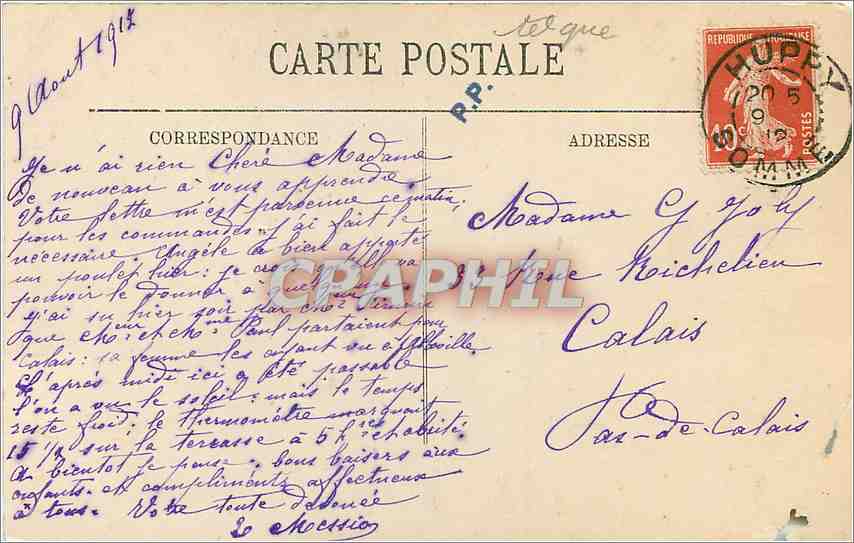 9 Aout 1912
tel que
CARTE POSTALE
P.P.
REPUBLIQUE FRANÇAISE
10 c
POSTES
HUPPY
20 5
9
12
SOMME
CORRESPONDANCE
ADRESSE
Je n'ai rien Chère Madame
de nouveau à vous apprendre
Votre lettre m'est parvenue ce matin,
pour les commandes j'ai fait le
nécessaire. Angèle a bien apporté
un poulet hier: je crois qu'elle va
pouvoir le donner à quelqu'un.
J'ai su hier soir par
que Mr et Mme Paul partaient pour
Calais: sa femme les ayant vu à Abbeville
L'après midi ici a été passable
l'on a vu le soleil: mais le temps
reste froid: le thermomètre marquait
15 ½ sur la terrasse à 5 h
A bientôt je pense. bons baisers aux
enfants et compliments affectueux
à tous. Votre toute dévouée
L Messio
Madame G Joly
33 Rue Richelieu
Calais
Pas-de-Calais
CPAPHIL